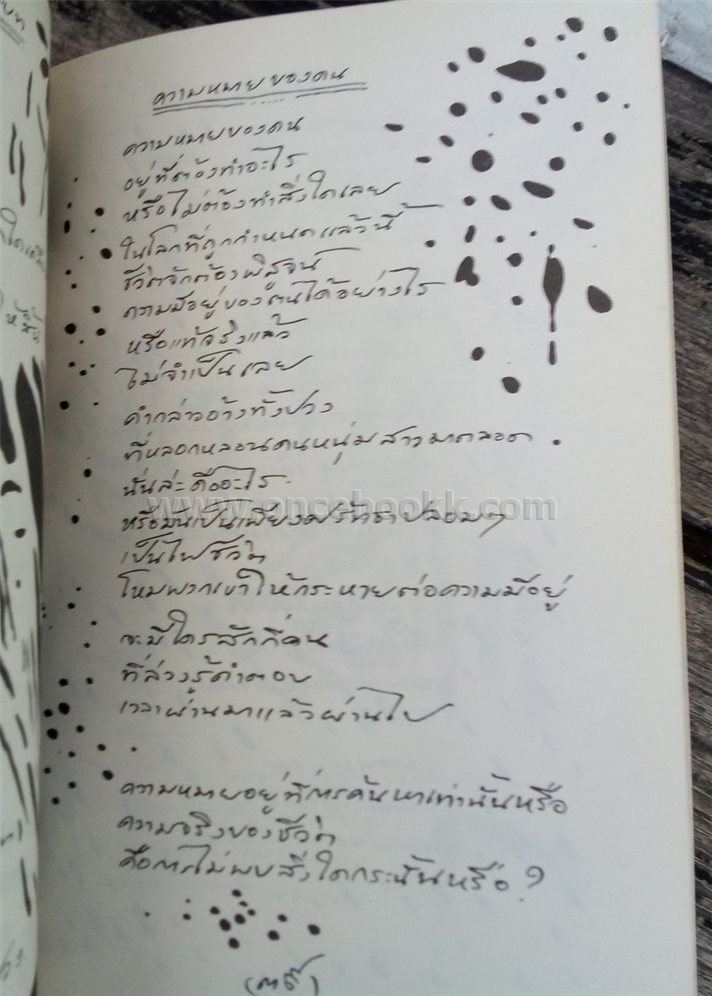 ความหมายของคน
ความหมายของคน
อยู่ที่ต้องทำอะไร
หรือไม่ต้องทำสิ่งใดเลย
ในโลกที่ถูกกำหนดแล้วนี้
ชีวิตจักต้องพิสูจน์
ความมีอยู่ของตนได้อย่างไร
หรือแท้จริงแล้ว
ไม่จำเป็นเลย
คำกล่าวอ้างทั้งปวง
ที่หลอกหลอนคนหนุ่มสาวมาตลอด
นั่นล่ะคืออะไร
www.oncebookk.com
หรือมันเป็นเพียงศรัทธาปลอมๆ
เป็นไฟชีวิต
โหมพวกเขาให้กระหายต่อความมีอยู่
จะมีใครสักกี่คน
ที่ล่วงรู้คำตอบ
เวลาผ่านมาแล้วผ่านไป
ความหมายอยู่ที่การค้นหาเท่านั้นหรือ
ความจริงของชีวิต
คือการไม่พบสิ่งใดกระนั้นหรือ?